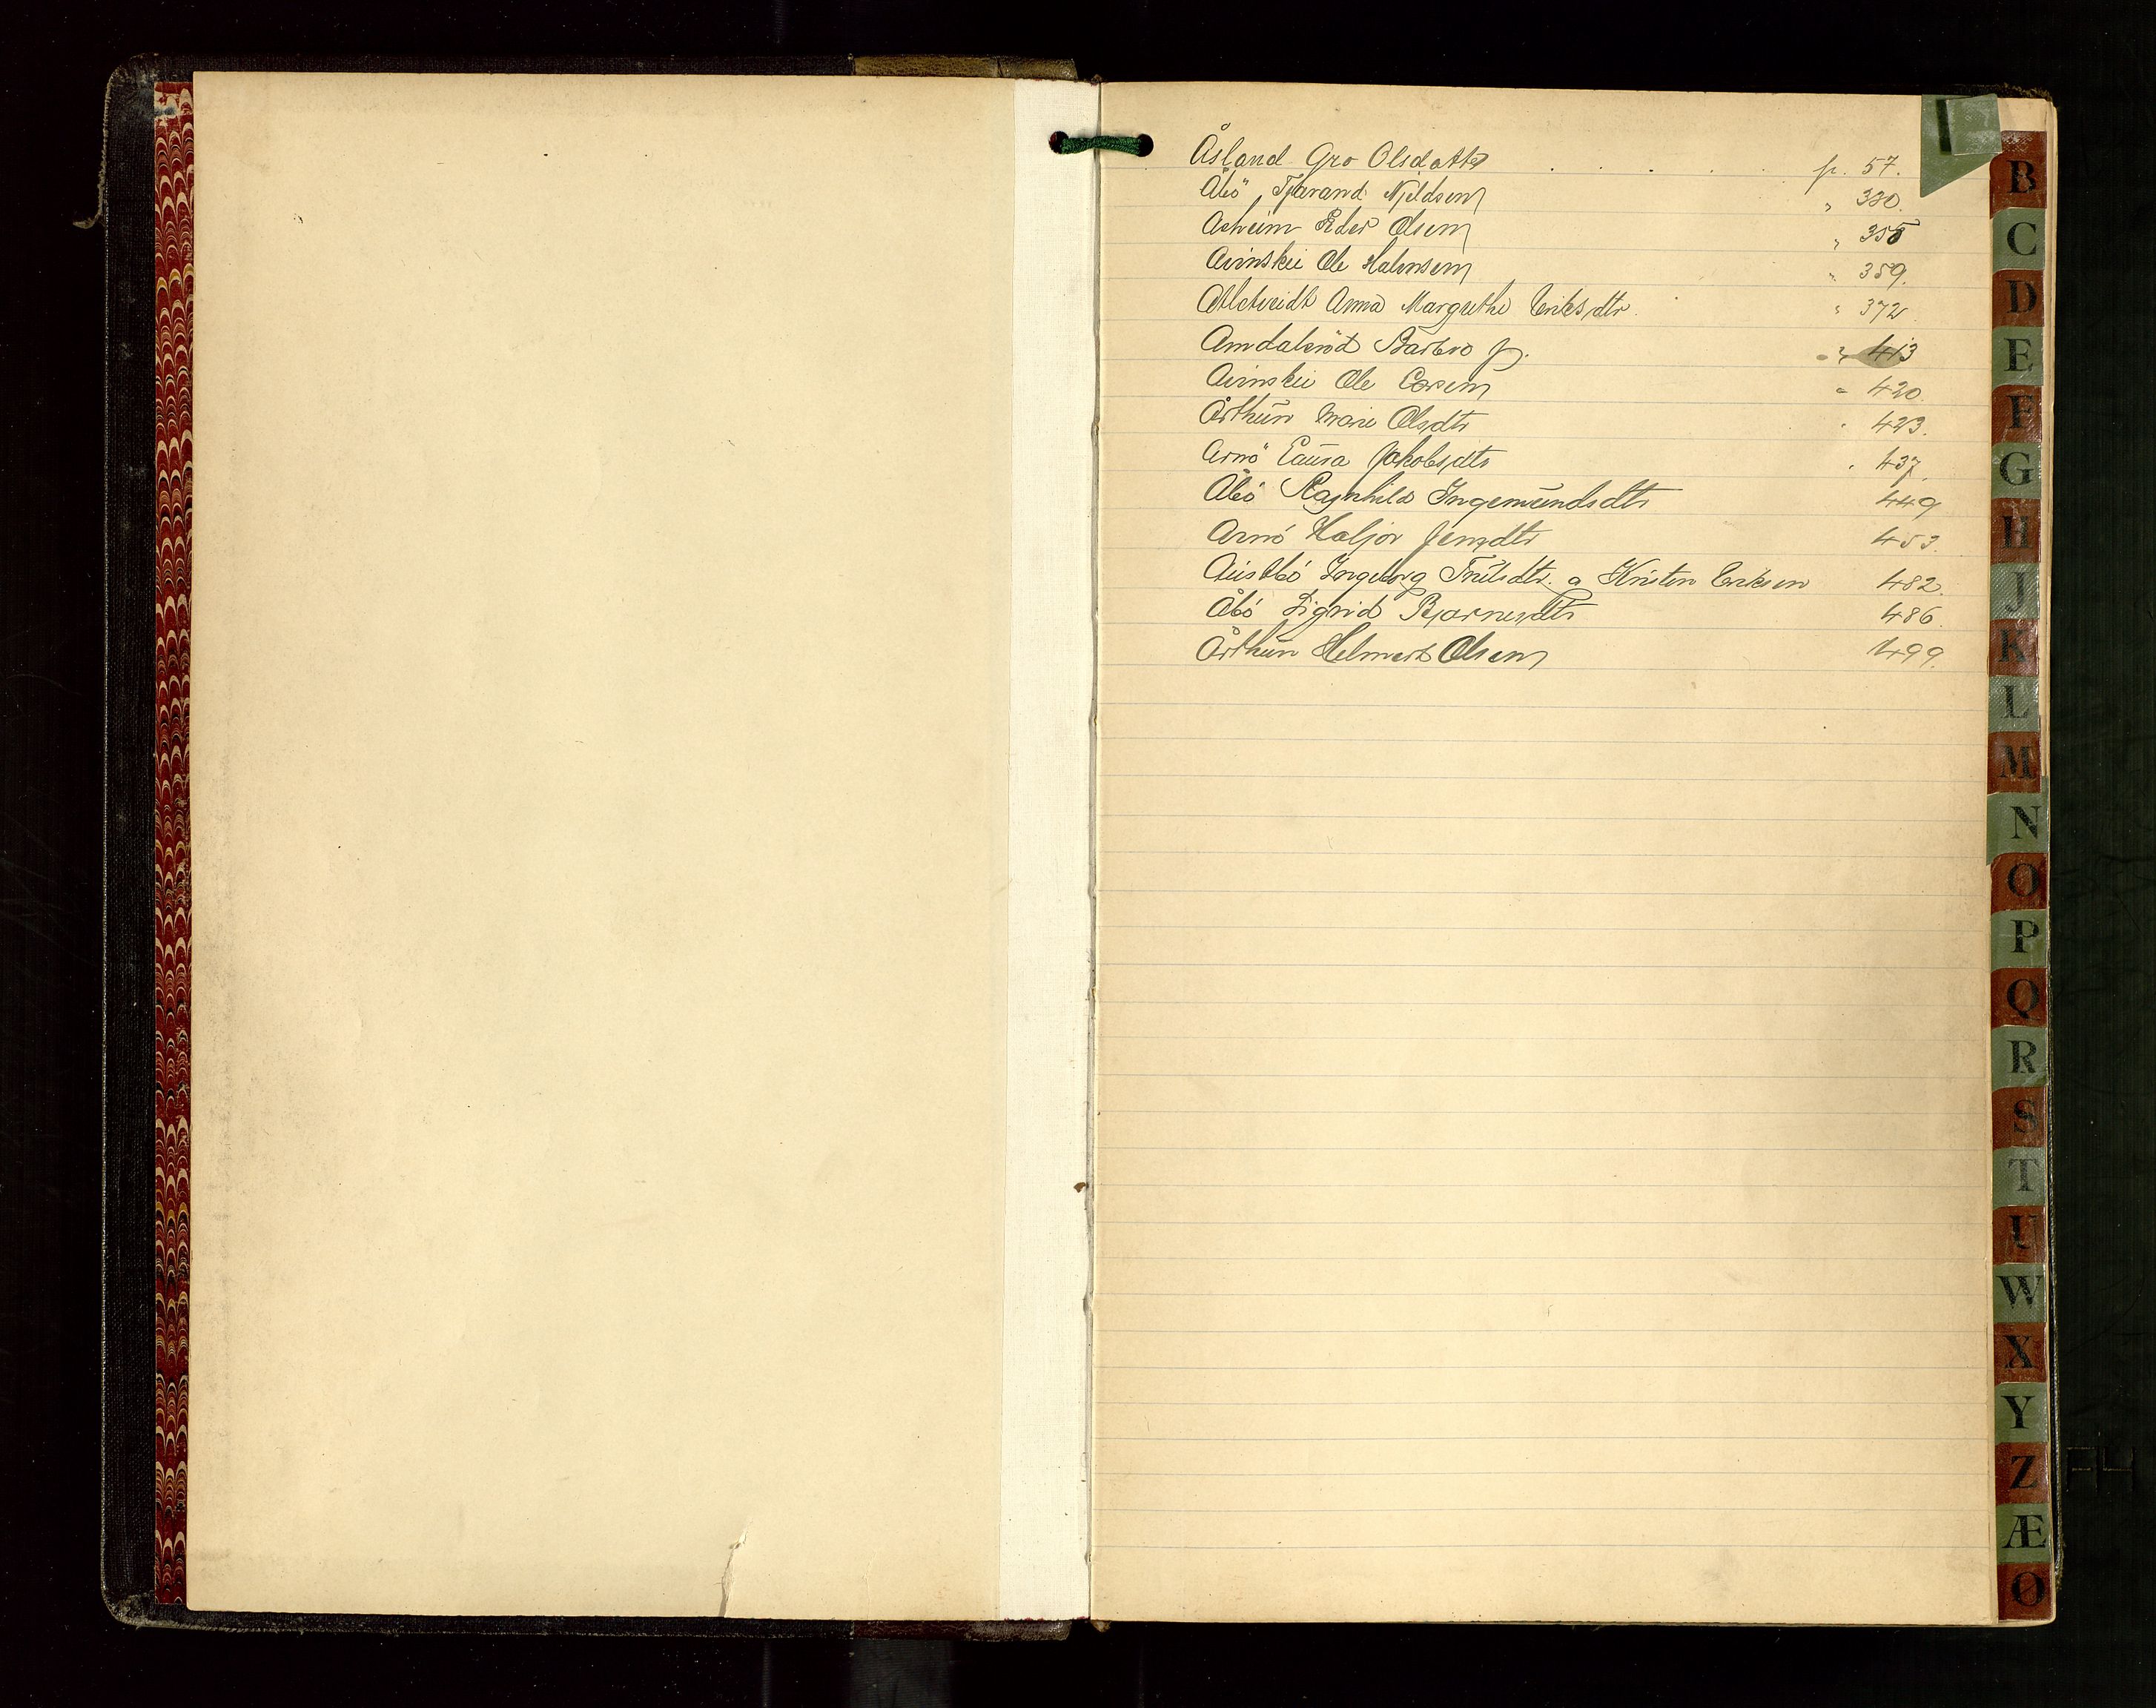 Åsland Gro Olsdatter . . . . . p. 57.
Åbö Tjerand Njeldsen " 330.
Asheim Peder Olsen " 355
Auenskei Ole Halvorsen " 359.
Anna Margrethe Eriksdtr. " 372
Amdalsröd Barbro J. " 413
Auenskei Ole Larsen " 420.
Årthun Marie Olsdtr " 423.
Arnö Laura Jakobsdtr " 437.
Åbö Ragnhild Ingemundsdtr 449
Arnö Haljor Jensdtr 453.
Austbö Ingeborg Knutsdtr. o Kristen Eriksen 482.
Åbö Sigrid Bjarnesdtr 486.
Årthun Helmert Olsen 499.
B
C
D
E
F
G
H
J
K
L
M
N
O
P
Q
R
S
T
U
W
X
Y
Z
Æ
Ø